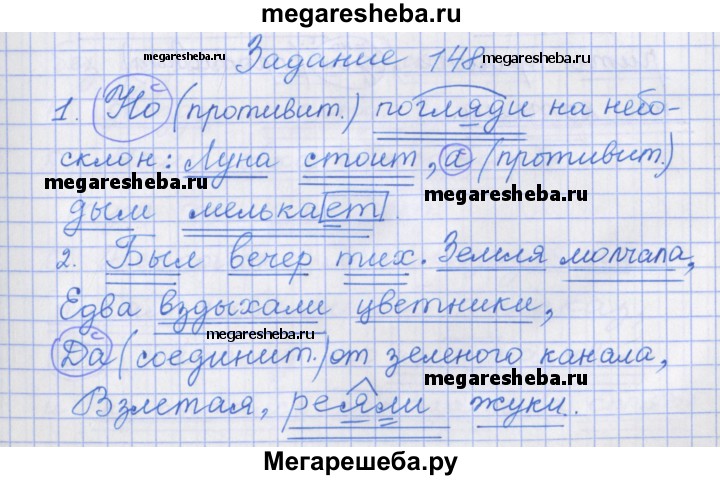 megaresheba.ru
megaresheba.ru
Задание 148.
megaresheba.ru
1. Но (противит.) погляди на небо-
склон: Луна стоит, а (противит.)
megaresheba.ru
megaresheba.ru
дым мелькает.
2. Был вечер тих. Земля молчала,
Едва вздыхали цветники,
megaresheba.ru
Да (соединит.) от зеленого канала,
megaresheba.ru
Взлетая, реяли жуки.
Мегарешеба.ру